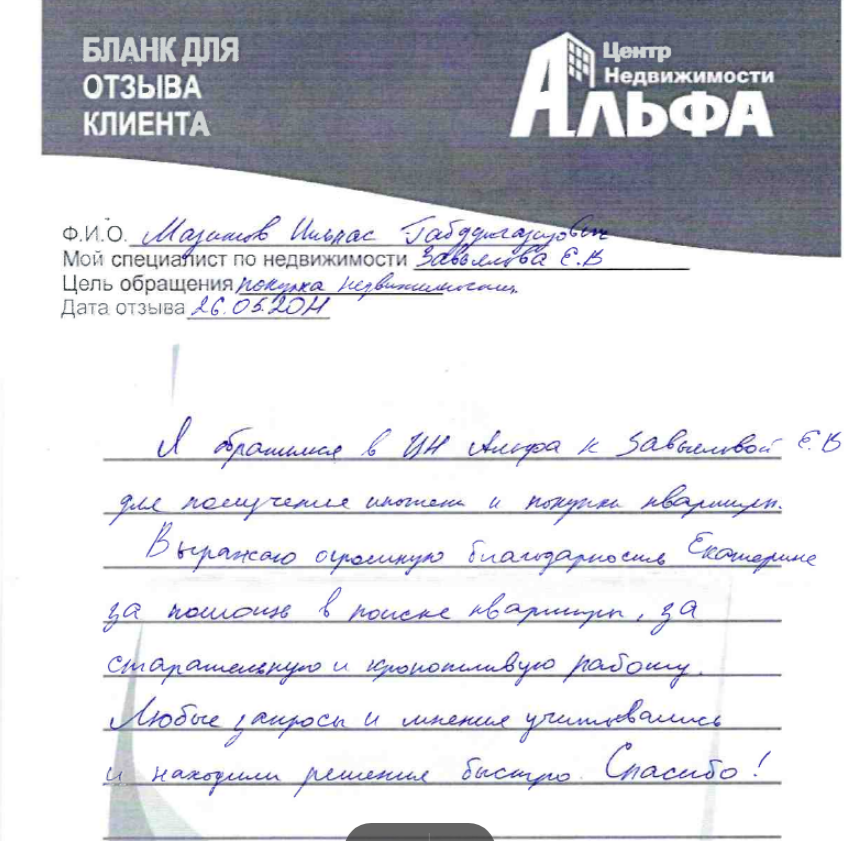 БЛАНК ДЛЯ
ОТЗЫВА
КЛИЕНТА
Центр
Недвижимости
АЛЬФА
Ф.И.О. Ильдас
Мой специалист по недвижимости Завьялова Е.В
Цель обращения покупка недвижимости
Дата отзыва 26.05.2011
Я обратился в ЦН Альфа к Завьяловой Е.В
для получения ипотеки и покупки квартиры.
Выражаю огромную благодарность Екатерине
за помощь в поиске квартиры, за
старательную и кропотливую работу.
Любые запросы и мнения учитывались
и находили решения быстро. Спасибо!